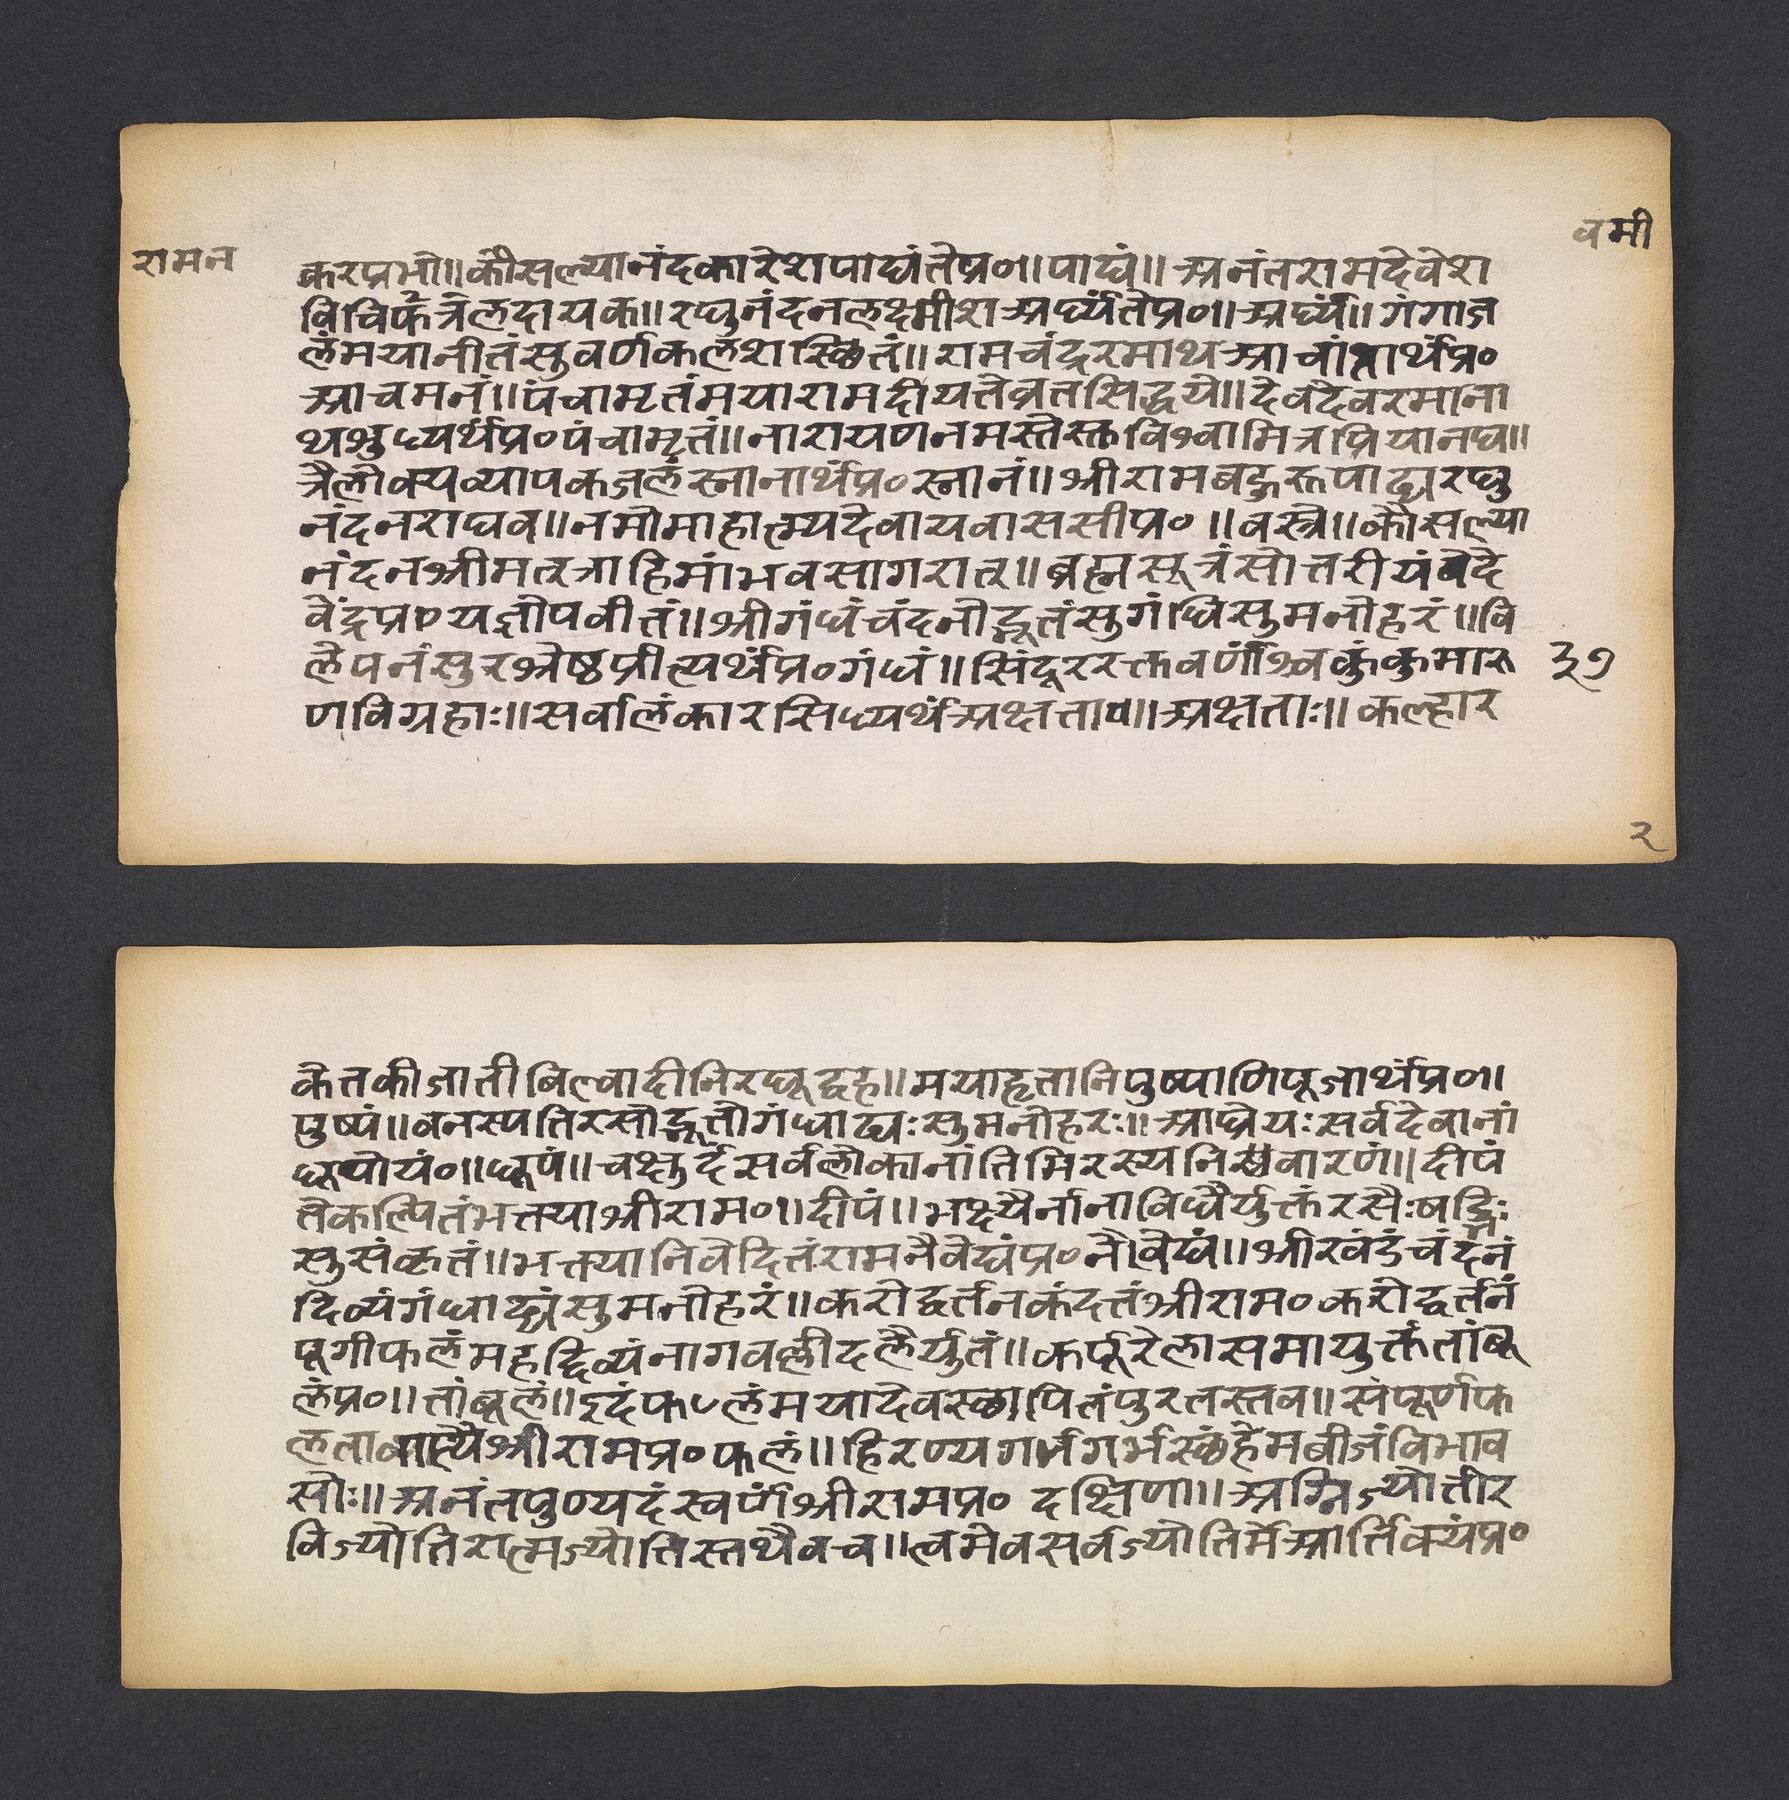 रामन
वमी
करप्रभो॥कौसल्यानंदकारेशपाद्यंतेप्र०॥पाद्यं॥अनंतरामदेवेश
विचित्रफलदायक॥रघुनंदनलक्ष्मीशअर्घ्यंतेप्र०॥अर्घ्यं॥गंगाज
लंमयानीतंसुवर्णकलशस्थितं॥रामचंद्ररमाथआचांतार्थंप्र०
आचमनं॥पंचामृतंमयारामदीयतेव्रतसिद्धये॥देवदेवरमाना
थशुध्यर्थंप्र०पंचामृतं॥नारायणनमस्तेस्तविश्वामित्रप्रियानघ॥
त्रैलोक्यव्यापकजलंस्नानार्थंप्र०स्नानं॥श्रीरामबहुरूपाढ्यरघु
नंदनराघव॥नमोमाहात्म्यदेवायवाससीप्र०॥वस्त्रे॥कौसल्या
नंदनश्रीमत्रत्राहिमांभवसागरात्॥ब्रह्मसूत्रंसोत्तरीयंवेदे
वेंद्रप्र०यज्ञोपवीतं॥श्रीगंधंचंदनोद्भूतंसुगंधिसुमनोहरं॥वि
लेपनंसुरश्रेष्ठप्रीत्यर्थंप्र०गंधं॥सिंदूररक्तवर्णाश्चकुंकुमारु
३७
णविग्रहाः॥सर्वालंकारसिध्यर्थंअक्षताप॥अक्षताः॥कल्हार
२
केतकीजातीबिल्वादीनिरघूद्वह॥मयाहृतानिपुष्पाणिपूजार्थंप्र०॥
पुष्पं॥वनस्पतिरसोद्भूतोगंधाढ्यःसुमनोहरः॥आघ्रेयःसर्वदेवानां
धूपोयं०॥धूपं॥चक्षुर्देसर्वलोकानांतिमिरस्यनिवारणं॥दीपं
तेकल्पितंभत्तयाश्रीराम०॥दीपं॥भक्ष्यैर्नानाविधैर्युक्तंरसैःषड्भिः
सुसंकृतं॥भत्तयानिवेदितंरामनैवेद्यंप्र०नैवेद्यं॥श्रीखंडंचंदनं
दिव्यंगंधाढ्यंसुमनोहरं॥करोद्वर्तनकंदत्तंश्रीराम०करोद्वर्तनं
पूगीफलंमहद्दिव्यंनागवल्लीदलैर्युतं॥कर्पूरेलासमायुक्तंतांबू
लंप्र०॥तांबूलं॥इदंफलंमयादेवस्थापितंपुरतस्तव॥संपूर्णफ
लतावाप्त्यैश्रीरामप्र०फलं॥हिरण्यगर्भगर्भस्थंहेमबीजंविभाव
सोः॥अनंतपुण्यदंस्वर्णंश्रीरामप्र०दक्षिणा॥अग्निज्योतीर
विज्योतिरात्मज्योतिस्तथैवच॥त्वमेवसर्वज्योतिर्मेआर्तिक्यंप्र०